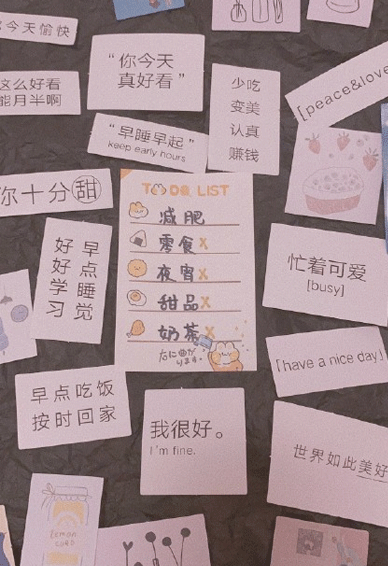 今天愉快
“你今天
真好看”
少吃
变美
认真
赚钱
[peace&love
这么好看
能月半啊
“早睡早起”
keep early hours
你十分甜
TO DO LIST
减肥
零食x
夜宵x
甜品x
奶茶x
右に曲が
ります。
早点睡觉
好好学习
忙着可爱
[busy]
[have a nice day]
早点吃饭
按时回家
我很好。
I'm fine.
世界如此美好
lemon